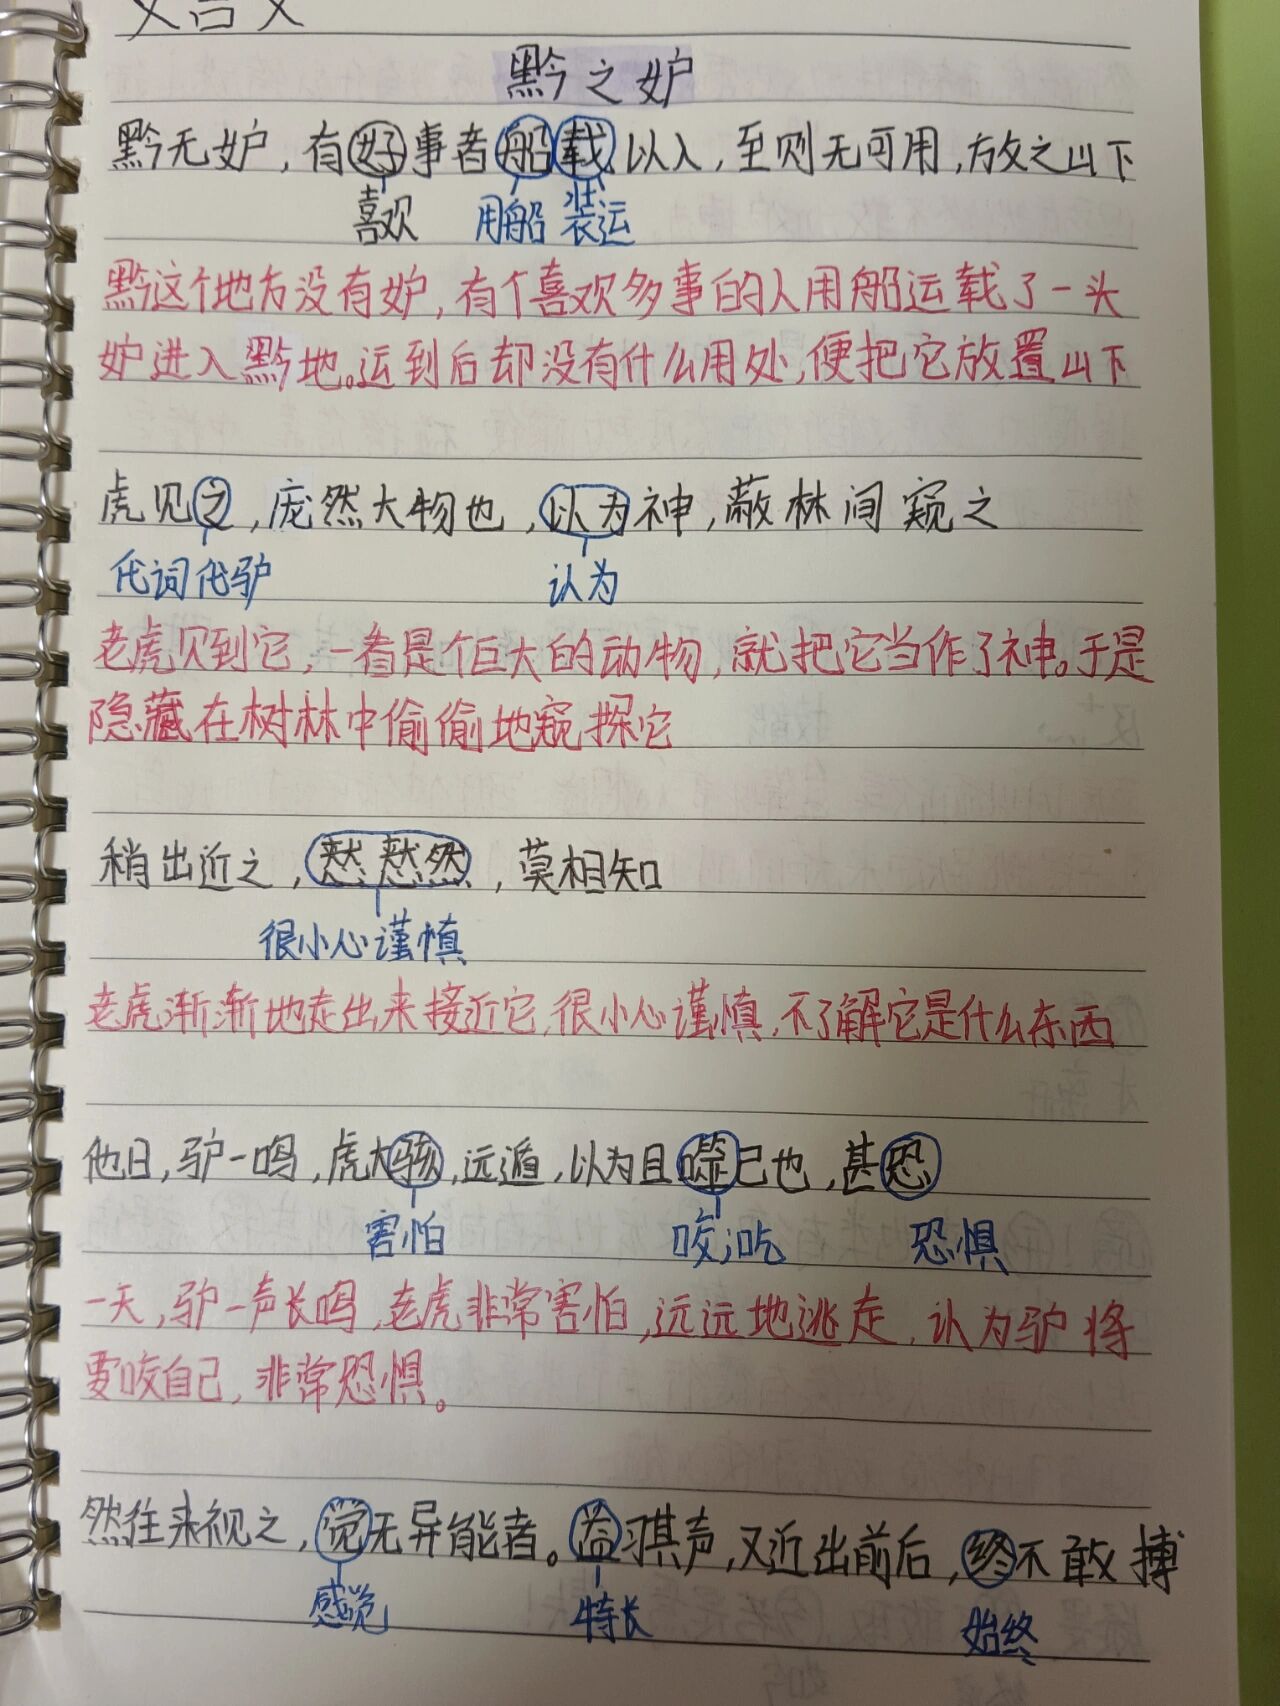 文言文
黔之驴
黔无驴，有好事者船载以入，至则无可用，放之山下
喜欢 用船 装运
黔这个地方没有驴，有个喜欢多事的人用船运载了一头
驴进入黔地。运到后却没有什么用处，便把它放置山下
虎见之，庞然大物也，以为神，蔽林间窥之
代词代驴 认为
老虎见到它，一看是个巨大的动物，就把它当作了神。于是
隐藏在树林中偷偷地窥探它
稍出近之，慭慭然，莫相知
很小心谨慎
老虎渐渐地走出来接近它，很小心谨慎，不了解它是什么东西
他日，驴一鸣，虎大骇，远遁，以为且噬己也，甚恐
害怕 咬；吃 恐惧
一天，驴一声长鸣，老虎非常害怕，远远地逃走，认为驴将
要咬自己，非常恐惧。
然往来视之，觉无异能者。益习其声，又近出前后，终不敢搏
感觉 特长 始终